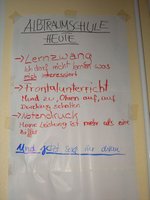 ALBTRAUMSCHULE
HEUTE
→ Lernzwang
Ich darf nicht lernen was
mich interessiert
→ Frontalunterricht
Mund zu, Ohren auf, auf
Durchzug schalten
→ Notendruck
Meine Leistung ist mehr als eine
Ziffer
Und jetzt seid ihr dran